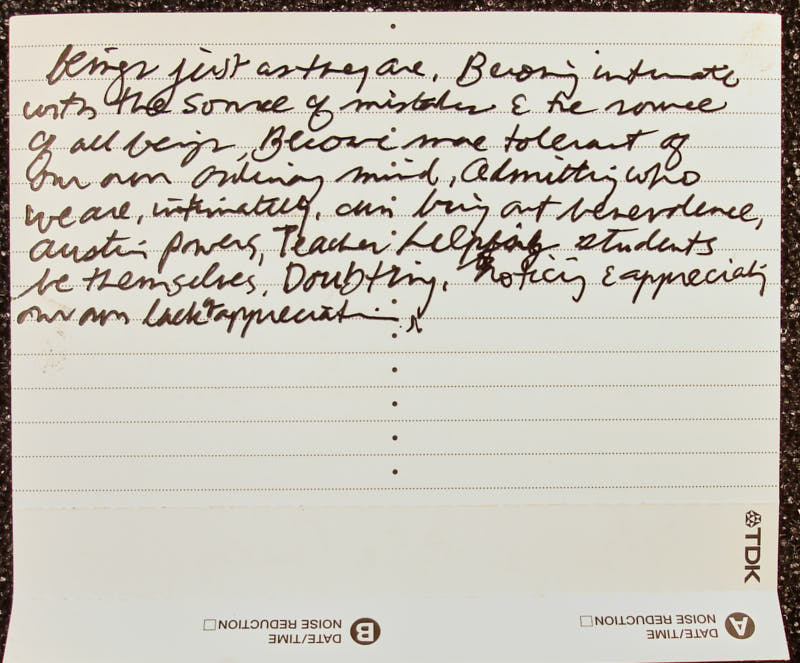 beings just as they are, Becoming intimate
with the source of mistakes & the source
of all beings, Become more tolerant of
our own ordinary mind, Admitting who
we are, intimately, can bring out benevolence,
austin powers, Teacher helping students
be themselves, Doubting, Noticing & appreciating
our own lack of appreciation.
TDK
A DATE/TIME
NOISE REDUCTION
B DATE/TIME
NOISE REDUCTION